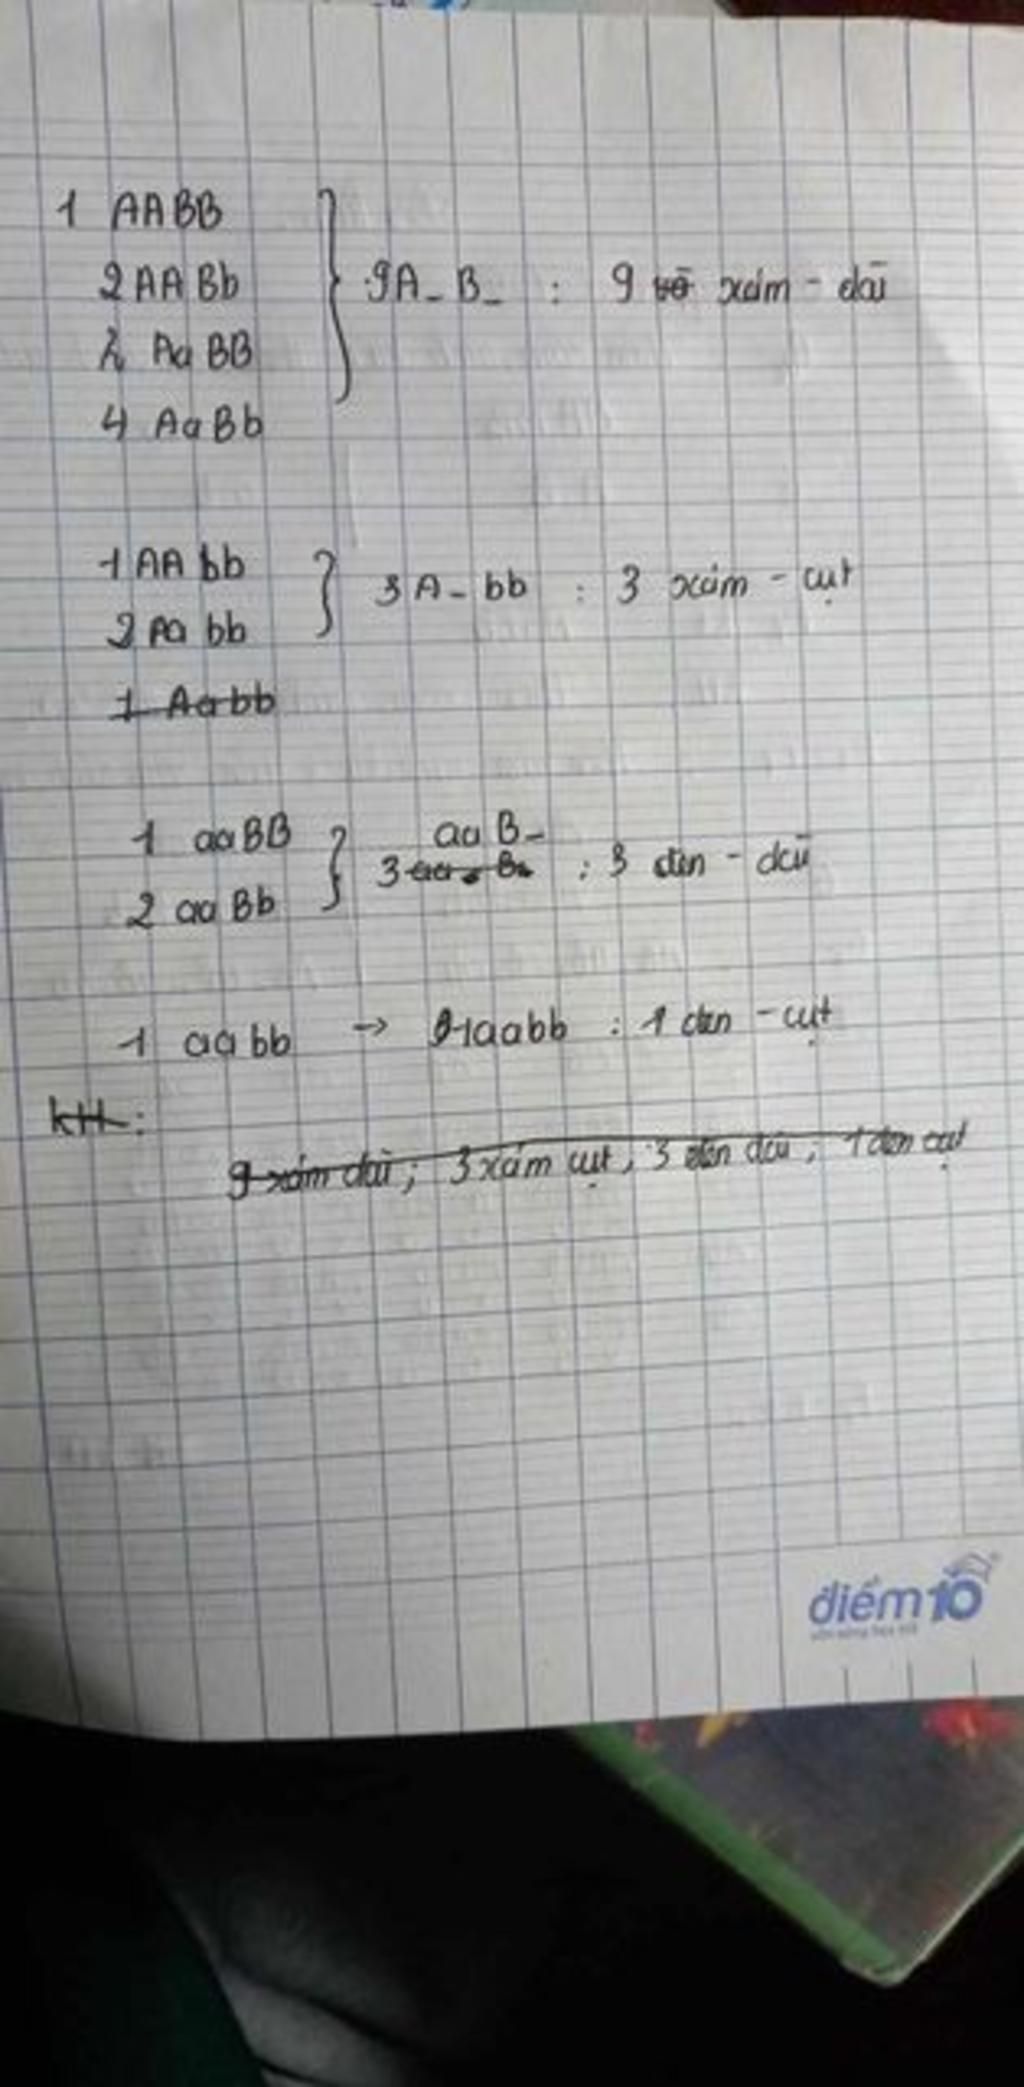 1 AABB
2 AABb } 9A_B_ : 9 xám - dài
2 AaBB
4 AaBb
1 AAbb } 3A_bb : 3 xám - cụt
2 Aabb
1 Aabb
1 aaBB } aaB_
3 aa B_ : 3 đen - dài
2 aaBb
1 aabb → 1aabb : 1 đen - cụt
KH:
9 xám dài ; 3 xám cụt , 3 đen dài ; 1 đen cụt
điểm10